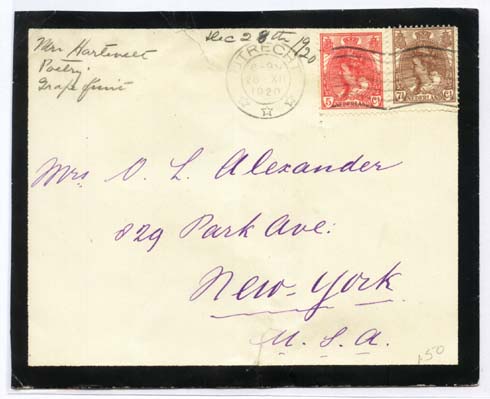 Dec 28th 1920
Mrs Hartevelt
Poetry
Grape fruit
UTRECHT
28 XII
1920
5 Ct
NEDERLAND
7½ Ct
NEDERLAND
Mrs. O. L. Alexander
829 Park Ave:
New-York
U. S. A.
150